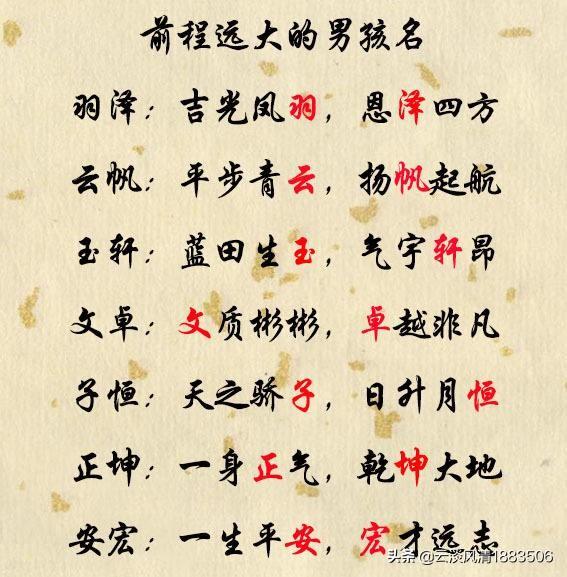 前程远大的男孩名
羽泽：吉光凤羽，恩泽四方
云帆：平步青云，扬帆起航
玉轩：蓝田生玉，气宇轩昂
文卓：文质彬彬，卓越非凡
子恒：天之骄子，日升月恒
正坤：一身正气，乾坤大地
安宏：一生平安，宏才远志
头条 @云淡风清1883506